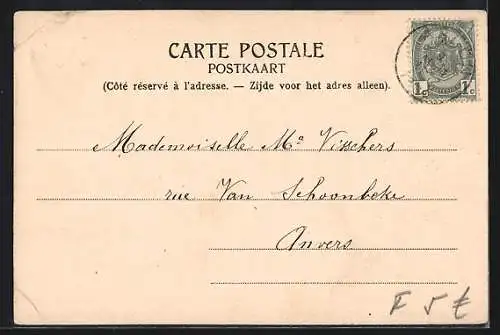 CARTE POSTALE
POSTKAART
(Côté réservé à l'adresse. — Zijde voor het adres alleen).
1c 1c
Mademoiselle Mª Visschers
rue Van Schoonbeke
Anvers
F 5 €